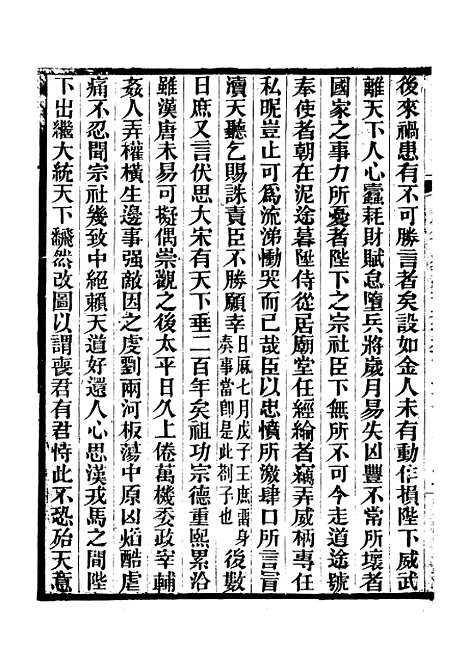 後來禍患有不可勝言者矣設如金人未有動作損陛下威武
離天下人心蠹耗財賦怠墮兵將歲月易失凶豐不常所壞者
國家之事力所憂者陛下之宗社臣下無所不可今走道途號
奉使者朝在泥途暮陞侍從居廟堂任經綸者竊弄威柄專任
私昵豈止可為流涕慟哭而已哉臣以忠憤所激肆口所言旨
瀆天聽乞賜誅責臣不勝願幸日厤七月戊子王庶雷身奏事當卽是此劄子也後數
日庶又言伏思大宋有天下垂二百年矣祖功宗德重熙累沿
雖漢唐未易可擬偶崇觀之後太平日久上倦萬機委政宰輔
姦人弄權橫生邊事强敵因之虔劉兩河板蕩中原凶焰酷虐
痛不忍聞宗社幾致中絕賴天道好還人心思漢戎馬之間陛
下出繼大統天下飜然改圖以謂喪君有君恃此不恐殆天意